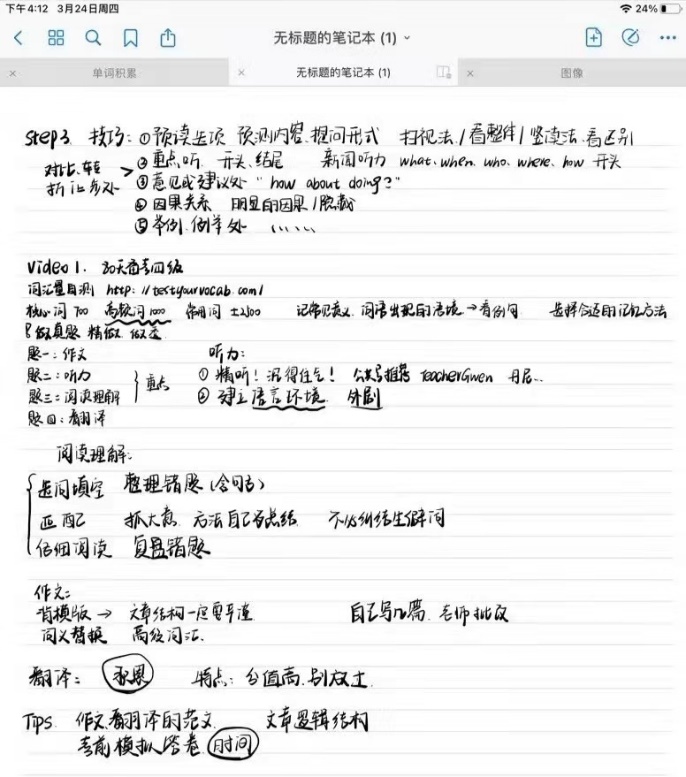 下午4:12 3月24日周四
24%
无标题的笔记本 (1)
单词积累
无标题的笔记本 (1)
图像
Step3. 技巧: ①预读选项 预测内容.提问形式 扫视法/看整体/竖读法.看区别
对比、转折让步处 > ②重点听 开头.结尾 新闻听力 what、when、who、where、how 开头
③意见或建议处 "how about doing?"
④因果关系 明显的因果/隐藏
⑤举例.例举处 、、、、、
Video 1. 30天备考四级
词汇量自测 http://testyourvocab.com/
核心词 700 高频词 1000 常用词 ±2100 记常见意义 词语出现的语境→看例句 选择合适的记忆方法
做真题 精做
题一:作文 听力:
题二:听力 ①精听!沉得住气! 公众号推荐 TeacherGwen
题三:阅读理解 } 重点 ②建立语言环境 外剧
题四:翻译
阅读理解:
选词填空 整理错题
匹配 抓大意 方法自己多总结 不必纠结生僻词
仔细阅读 复盘错题
作文:
背模版 → 文章结构一定要牢谨 自己写几篇.老师批改
同义替换 高级词汇.
翻译: 积累 特点:分值高.别放过
Tips 作文.翻译的范文 文章逻辑结构
考前模拟答卷 时间